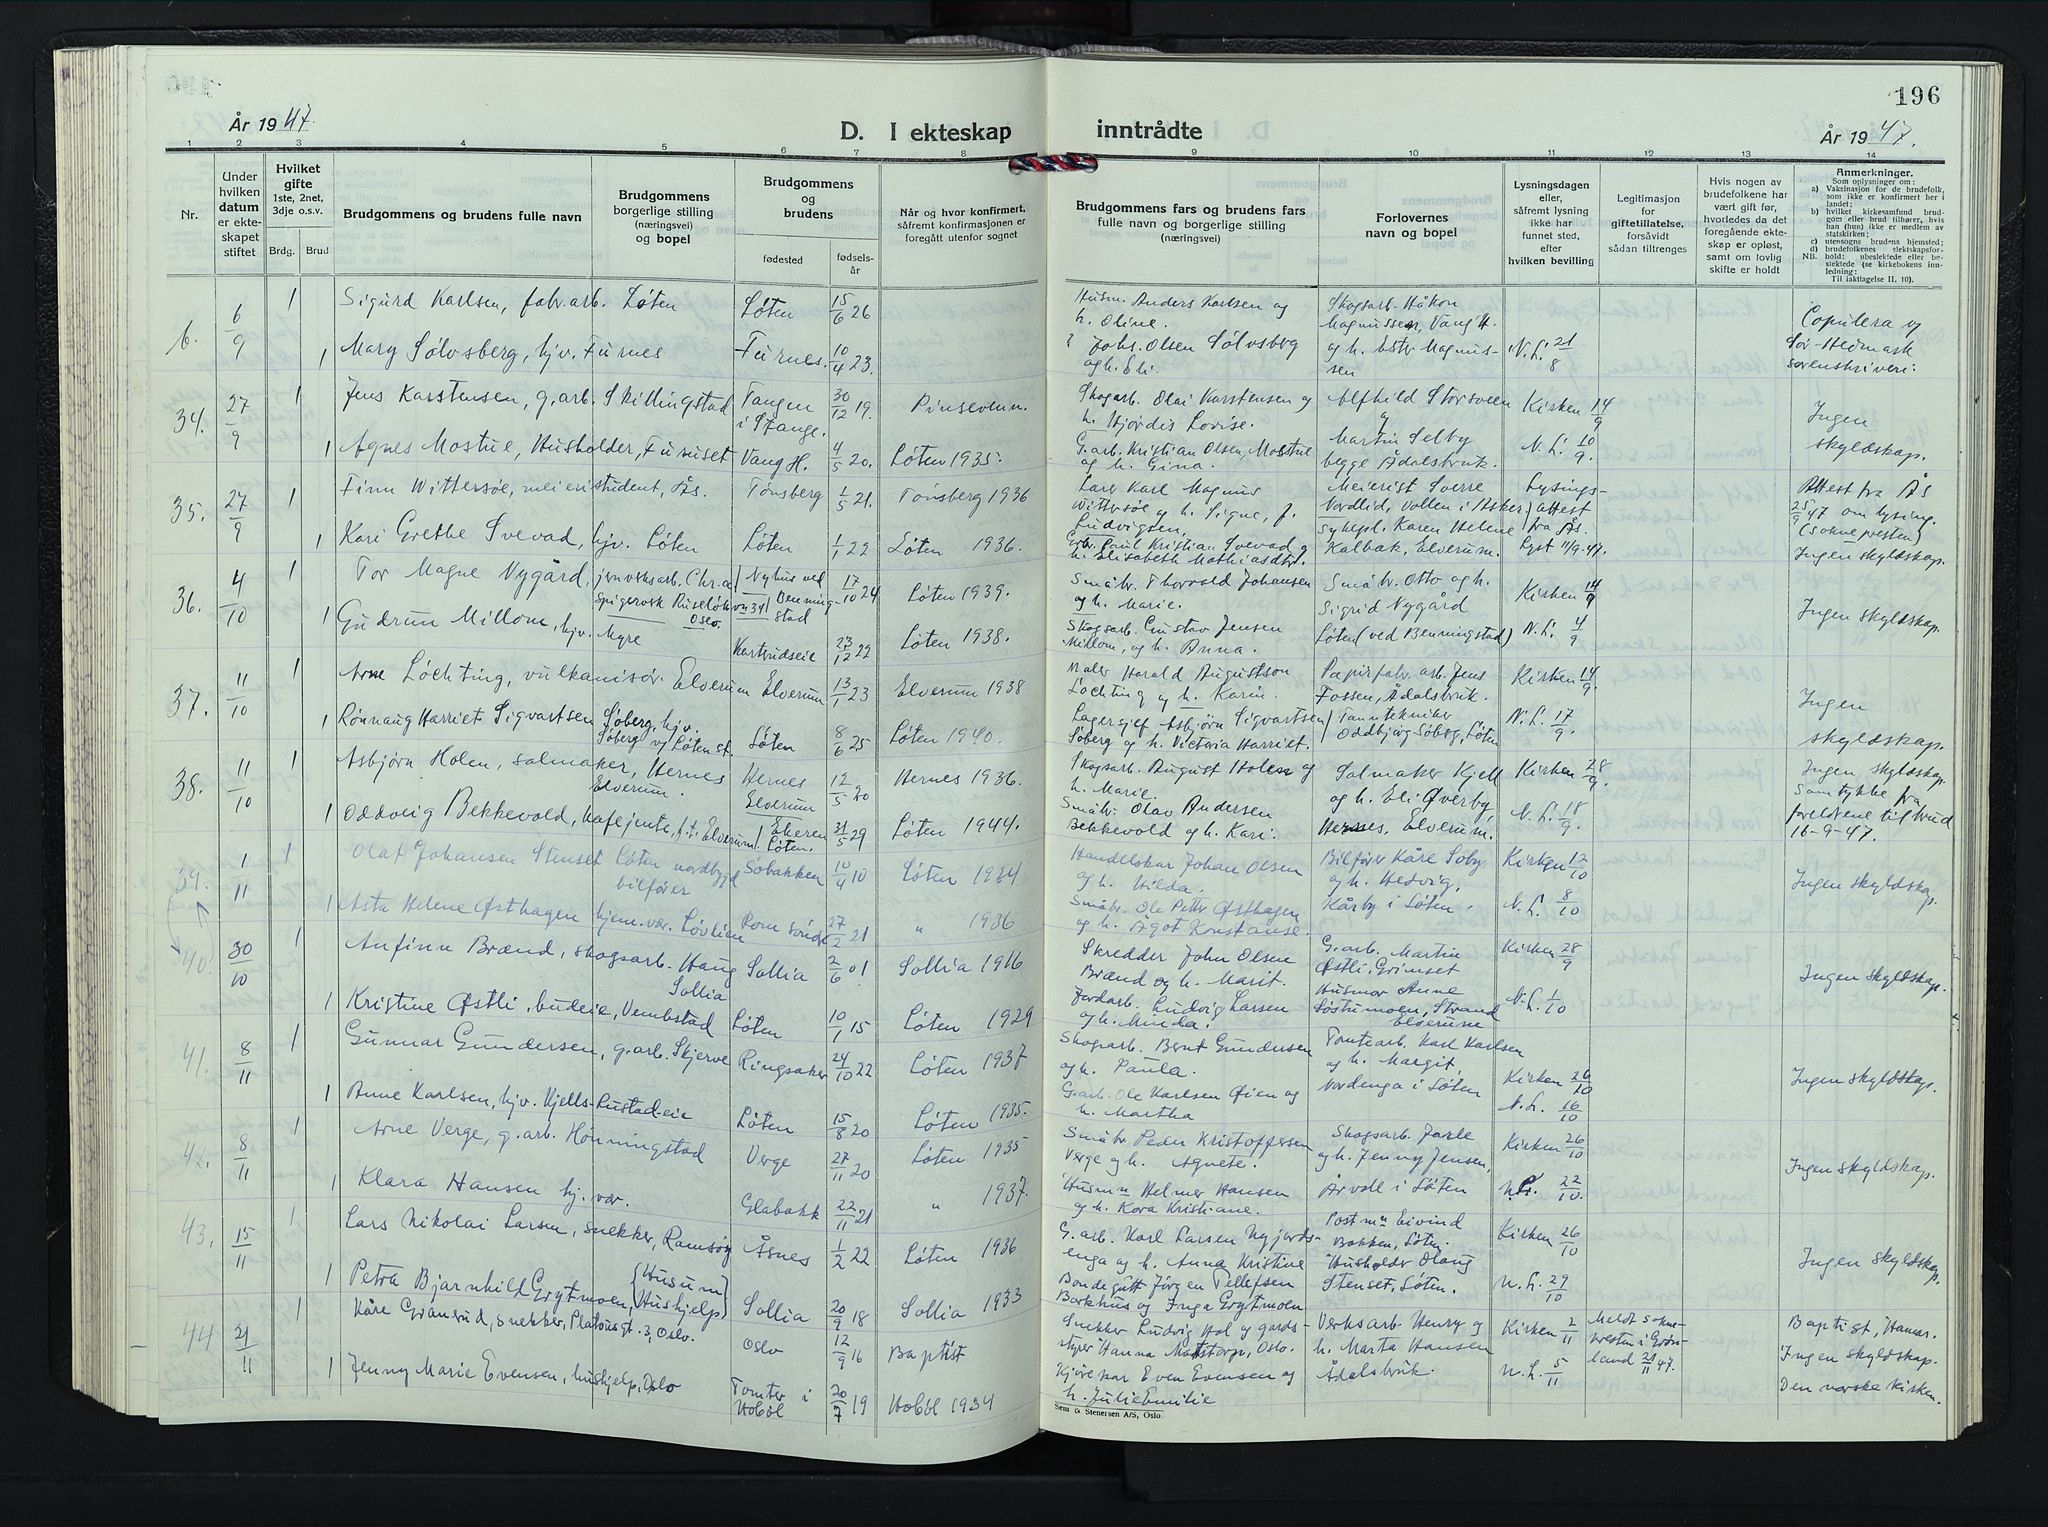 196
År 1947.
D. I ekteskap
inntrådte
År 1947.
1 2 3 4 5 6 7 8 9 10 11 12 13 14
Nr.
Under hvilken datum er ekteskapet stiftet
Hvilket gifte 1ste, 2net, 3dje o.s.v.
Brdg. Brud
Brudgommens og brudens fulle navn
Brudgommens borgerlige stilling (næringsvei) og bopel
Brudgommens og brudens
fødested
fødselsår
Når og hvor konfirmert, såfremt konfirmasjonen er foregått utenfor sognet
Brudgommens fars og brudens fars fulle navn og borgerlige stilling (næringsvei)
Forlovernes navn og bopel
Lysningsdagen eller, såfremt lysning ikke har funnet sted, efter hvilken bevilling
Legitimasjon for giftetillatelse, forsåvidt sådan tiltrenges
Hvis nogen av brudefolkene har vært gift før, hvorledes da det foregående ekteskap er opløst, samt om lovlig skifte er holdt
Anmerkninger.
Som oplysninger om:
a) Vaksinasjon for de brudefolk, som ikke er konfirmert her i landet;
b) hvilket kirkesamfund brudgom eller brud tilhører, hvis han (hun) ikke er medlem av statskirken;
c) utensogns brudens hjemsted;
d) brudefolkenes slektskapsforhold: ubeslektede eller beslektede (se kirkebokens innledning:
NB. Til iakttagelse II. 10).
6. 6/9 1 Sigurd Karlsen, fabr.arb. Løten Løten 15/6 26 Husm. Anders Karlsen og h. Oline. Skogsarb. Håkon Magnussen, Vang H. Copulera v/ Sør-Hedmark sorenskriveri:
1 Mary Sølvsberg, hj.v. Furnes Furnes. 10/4 23. Johs. Olsen Sølvsberg og h. Eli. og h. Ester Magnussen N.L. 21/8
34. 27/9 1 Jens Karstensen, g.arb. Skillingstad Tangen i Stange. 30/12 19. Pinsevenn. Skogarb. Olai Karstensen og h. Hjørdis Lovise. Alfhild Storsveen Kirken 14/9 Ingen skyldskap.
1 Agnes Mostue, Husholder, Furuset Vang H. 4/5 20. Løten 1935. G.arb. Kristian Olsen, Mostue og h. Gina. og Martin Selby begge Ådalsbruk. N.L. 10/9.
35. 27/9 1 Finn Wittersøe, meieristudent, Ås. Tønsberg 1/5 21. Tønsberg 1936 Lærer Karl Magnus Wittersøe og h. Signe, f. Ludvigsen, Meierist Sverre Nordlid, Vollen i Asker Lysings-attest fra Ås Attest fra Ås 25/9 47 om lysing. (soknepresten)
1 Kari Grethe Svevad, hjv. Løten Løten 1/1 22 Løten 1936. Grbr. Paul Kristian Svevad og h. Elisabeth Mathiasdtr. sykepl. Karen Helene Kalbak, Elverum. Lyst 11/9-47. Ingen skyldskap.
36. 4/10 1 Tor Magne Nygård, jernverksarb. Chr.a Spigerverk Ruseløkvn 34 Oslo. Nyhus ved Benningstad 17/10 24 Løten 1939. Småbr. Thorvald Johansen og h. Marie. Småbr. Otto og h. Sigrid Nygård Kirken 14/9 Ingen skyldskap.
1 Gudrun Millom, hjv. Myre Kartrudseie 23/12 22 Løten 1938. Skogsarb. Gustav Jensen Millom, og h. Anna. Løten (ved Benningstad) N.L. 4/9
37. 11/10 1 Arne Løchting, vulkanisør. Elverum Elverum 13/1 23 Elverum 1938 Maler Harald Augustson Løchting og h. Karin. Papirfabr. arb. Jens Fossen, Ådalsbruk. Kirken 14/9. Ingen skyldskap.
1 Rønnaug Harriet Sigvartsen Søberg, hjv. Søberg v/ Løten st. Løten 8/6 25 Løten 1940. Lagersjef Asbjørn Sigvartsen Søberg og h. Victoria Harriet. Tanntekniker Oddbjørg Søberg, Løten N.L. 17/9.
38. 11/10 1 Asbjørn Holen, salmaker, Hernes Elverum. Hernes Elverum 12/5 20 Hernes 1936. Skogsarb. August Holen og h. Marie. Salmaker Kjell og h. Eli Øverby, Kirken 28/9. Ingen skyldskap. Samtykke fra foreldrene til brud 16-9-47.
1 Oddveig Bekkevold, kafejente, f.t. Elverum. Ekeren Løten. 31/5 29 Løten 1944. Småbr. Olav Andersen Bekkevold og h. Kari. Hernes, Elverum. N.L. 18/9.
39. 1/11 1 Olaf Johansen Stenset Løten nordbygd bilfører Søbakken 10/4 10 Løten 1924 Handelskar Johan Olsen og h. Hilda. Bilfører Kåre Søby og h. Hedvig, Kirken 12/10 Ingen skyldskap.
1 Asta Helene Østhagen hjem.vær. Løvlien Romsørids 27/2 21 " 1936 Småbr. Ole Petter Østhagen og h. Ågot Konstanse. Kårby i Løten. N.L. 8/10
40. 30/10 1 Anfinn Brænd, skogsarb. Haug Sollia Sollia 2/6 01 Sollia 1916 Skredder John Olsen Brænd og h. Marit. G.arb. Martin Østli, Grimset Kirken 28/9 Ingen skyldskap.
1 Kristine Østli, budeie, Vembstad Løten 10/1 15 Løten 1929 Jordarb. Ludvig Larsen og h. Minda. Husmor Anne Løstumoen, Strand Elverum N.L. 1/10
41. 8/11 1 Gunnar Gundersen, g.arb. Skjerve Ringsaker 24/10 22 Løten 1937 Skogsarb. Bernt Gundersen og h. Paula. Tomtearb. Karl Karlsen og h. Margit, Kirken 26/10 Ingen skyldskap.
1 Anne Karlsen, hjv. Kjells-Lustadeie Løten 15/8 20 Løten 1935. G.arb. Ole Karlsen Øien og h. Martha Nordenga i Løten N.L. 16/10
42. 8/11 1 Arne Verge, g.arb. Hønningstad Verge 27/11 20 Løten 1935 Småbr. Peder Kristoffersen Verge og h. Agnete. Skogsarb. Jarle og h. Jenny Jensen, Kirken 26/10 Ingen skyldskap.
1 Klara Hansen hj.vær. Glabakk 22/11 21 " 1937. Husm.n Helmer Hansen og h. Kora Kristiane. Årvoll i Løten N.L. 22/10.
43. 15/11 1 Lars Nikolai Larsen, snekker, Ramsøy Åsnes 1/2 22 Løten 1936 G.arb. Karl Larsen Nyjordsenga og h. Anna Kristine Postm.n Eivind Bakken, Løten. Kirken 26/10 Ingen skyldskap.
1 Petra Bjarnhild Grytmoen, (Husum) (Hushjelp) Sollia 20/9 18 Sollia 1933 Bondegutt Jørgen Tellefsen Barkhus og Inga Grytmoen Husholdr Olaug Stenset, Løten. N.L. 29/10
44 21/11 1 Kåre Gransrud, snekker, Platousgt. 3, Oslo. Oslo 12/9 16 Baptist Snekker Ludvig Hol og gardsstyrer Hanna Mastorp, Oslo. Verksarb. Henry og h. Marta Hansen Kirken 2/11 Meldt soknepresten i Grønland 21/11 47. Baptist, Hamar. Ingen skyldskap.
1 Jenny Marie Evensen, hushjelp, Oslo Tomter i Hobøl 20/7 19 Hobøl 1934 Kjørekar Even Evensen og h. Julie Emilie Ådalsbruk. N.L. 5/11 Den norske kirken.
Sem & Stenersen A/S, Oslo.